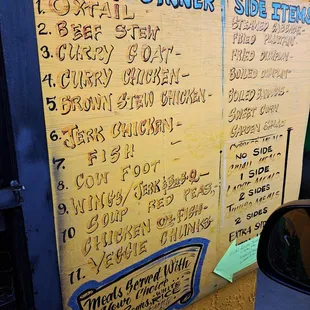 DINNER
1. OXTAIL
2. BEEF STEW
3. CURRY GOAT-
4. CURRY CHICKEN-
5. BROWN STEW CHICKEN-
6. JERK CHICKEN-
7 FISH
8 COW FOOT
9. WINGS/JERK & BAR-B-Q-
10 SOUP RED PEAS,
CHICKEN OR FISH-
11. VEGGIE CHUNKS-
MEALS SERVED WITH
SIDE ITEMS
STEAMED CABBAGE-
FRIED PLANTAIN-
FRIED DUMPLIN-
BOILED DUMPLIN-
BOILED BANANAS-
SWEET CORN-
GARDEN SALAD-
NO SIDE
SMALL MEALS
1 SIDE
LARGE MEALS
2 SIDES
2 SIDES
EXTRA SIDE